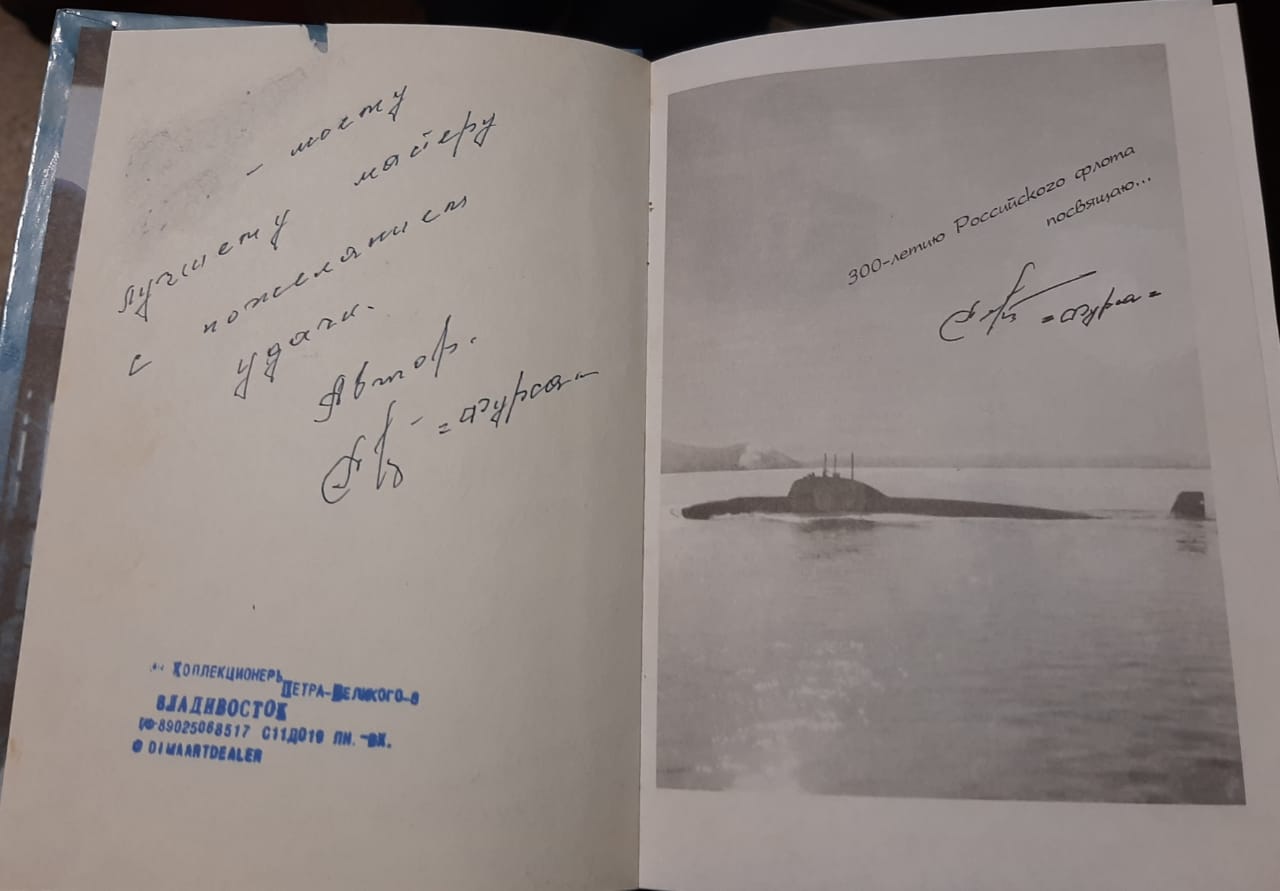 – моему
лучшему мастеру
с пожеланием
удачи.
Автор.
= Фурса =
Коллекционеръ
Петра-Великого-8
ВЛАДИВОСТОК
89025068517 С11ДО19 ПН.-ВК.
@ DIMAARTDEALER
300-летию Российского флота
посвящаю...
= Фурса =